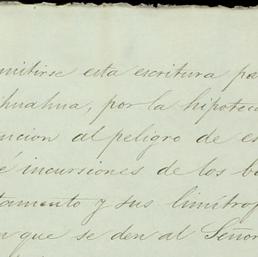 mitirse esta escritura pa
huahua, por la hipoteca
ncion al peligro de es
é incursiones de los bá
tamento y sus limítrof
n que se den al Señor